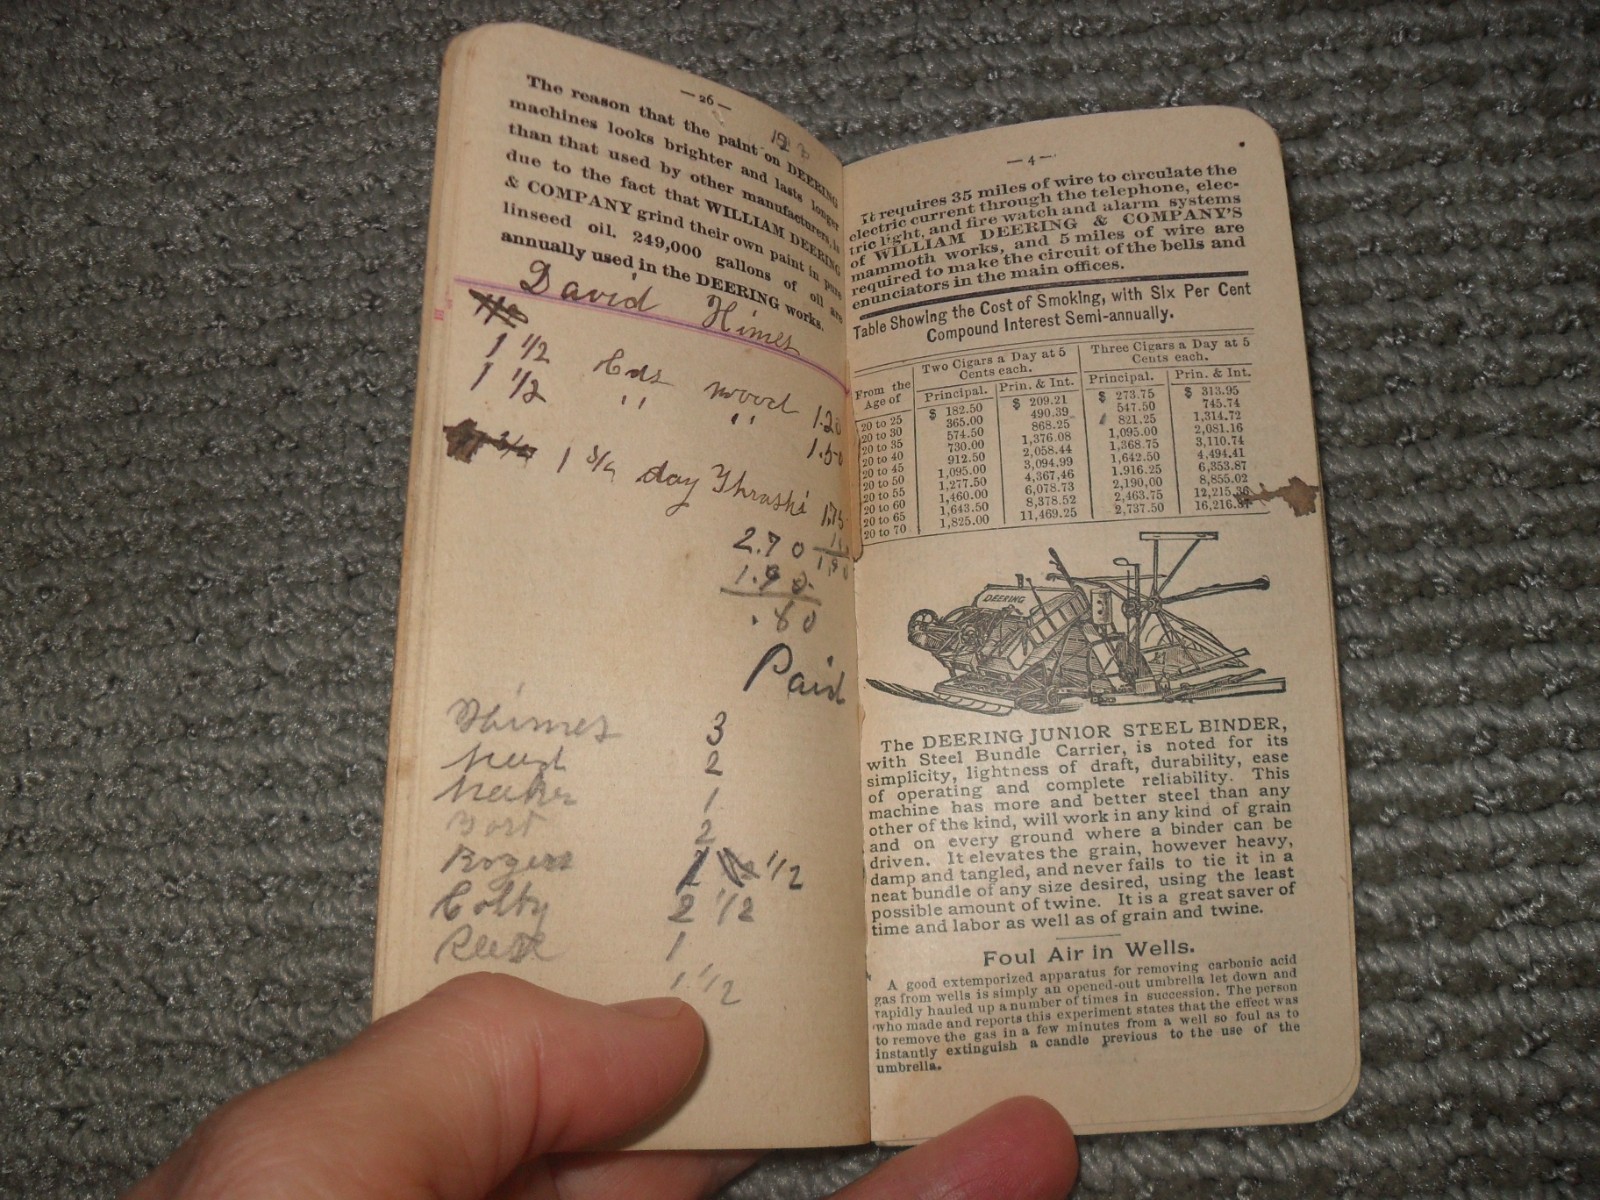 — 26 —
The reason that the paint on DEERING
machines looks brighter and lasts longer
than that used by other manufacturers, is
due to the fact that WILLIAM DEERING
& COMPANY grind their own paint in pure
linseed oil. 249,000 gallons of oil are
annually used in the DEERING works.
David Himes
1 1/2 Cds wood 1.20
1 1/2 " " 1.50
1 3/4 day Thrashi 1.75
2.70
1.90
.80
Paid
Himes 3
2
1
2
Rogers 1/2
Colby 2 1/2
1
1 1/2
— 4 —
It requires 35 miles of wire to circulate the
electric current through the telephone, elec-
tric light, and fire watch and alarm systems
of WILLIAM DEERING & COMPANY'S
mammoth works, and 5 miles of wire are
required to make the circuit of the bells and
enunciators in the main offices.
Table Showing the Cost of Smoking, with Six Per Cent
Compound Interest Semi-annually.
From the Age of Two Cigars a Day at 5 Cents each. Three Cigars a Day at 5 Cents each.
Principal. Prin. & Int. Principal. Prin. & Int.
20 to 25 $ 182.50 $ 209.21 $ 273.75 $ 313.95
20 to 30 365.00 490.39 547.50 745.74
20 to 35 574.50 868.25 821.25 1,314.72
20 to 40 730.00 1,376.08 1,095.00 2,081.16
20 to 45 912.50 2,058.44 1,368.75 3,110.74
20 to 50 1,095.00 3,094.99 1,642.50 4,494.41
20 to 55 1,277.50 4,367.46 1.916.25 6,353.87
20 to 60 1,460.00 6,078.73 2,190,00 8,855.02
20 to 65 1,643.50 8,378.52 2,463.75
20 to 70 1,825.00 11,469.25 2,737.50
DEERING
The DEERING JUNIOR STEEL BINDER,
with Steel Bundle Carrier, is noted for its
simplicity, lightness of draft, durability, ease
of operating and complete reliability. This
machine has more and better steel than any
other of the kind, will work in any kind of grain
and on every ground where a binder can be
driven. It elevates the grain, however heavy,
damp and tangled, and never fails to tie it in a
neat bundle of any size desired, using the least
possible amount of twine. It is a great saver of
time and labor as well as of grain and twine.
Foul Air in Wells.
A good extemporized apparatus for removing carbonic acid
gas from wells is simply an opened-out umbrella let down and
rapidly hauled up a number of times in succession. The person
who made and reports this experiment states that the effect was
to remove the gas in a few minutes from a well so foul as to
instantly extinguish a candle previous to the use of the
umbrella.